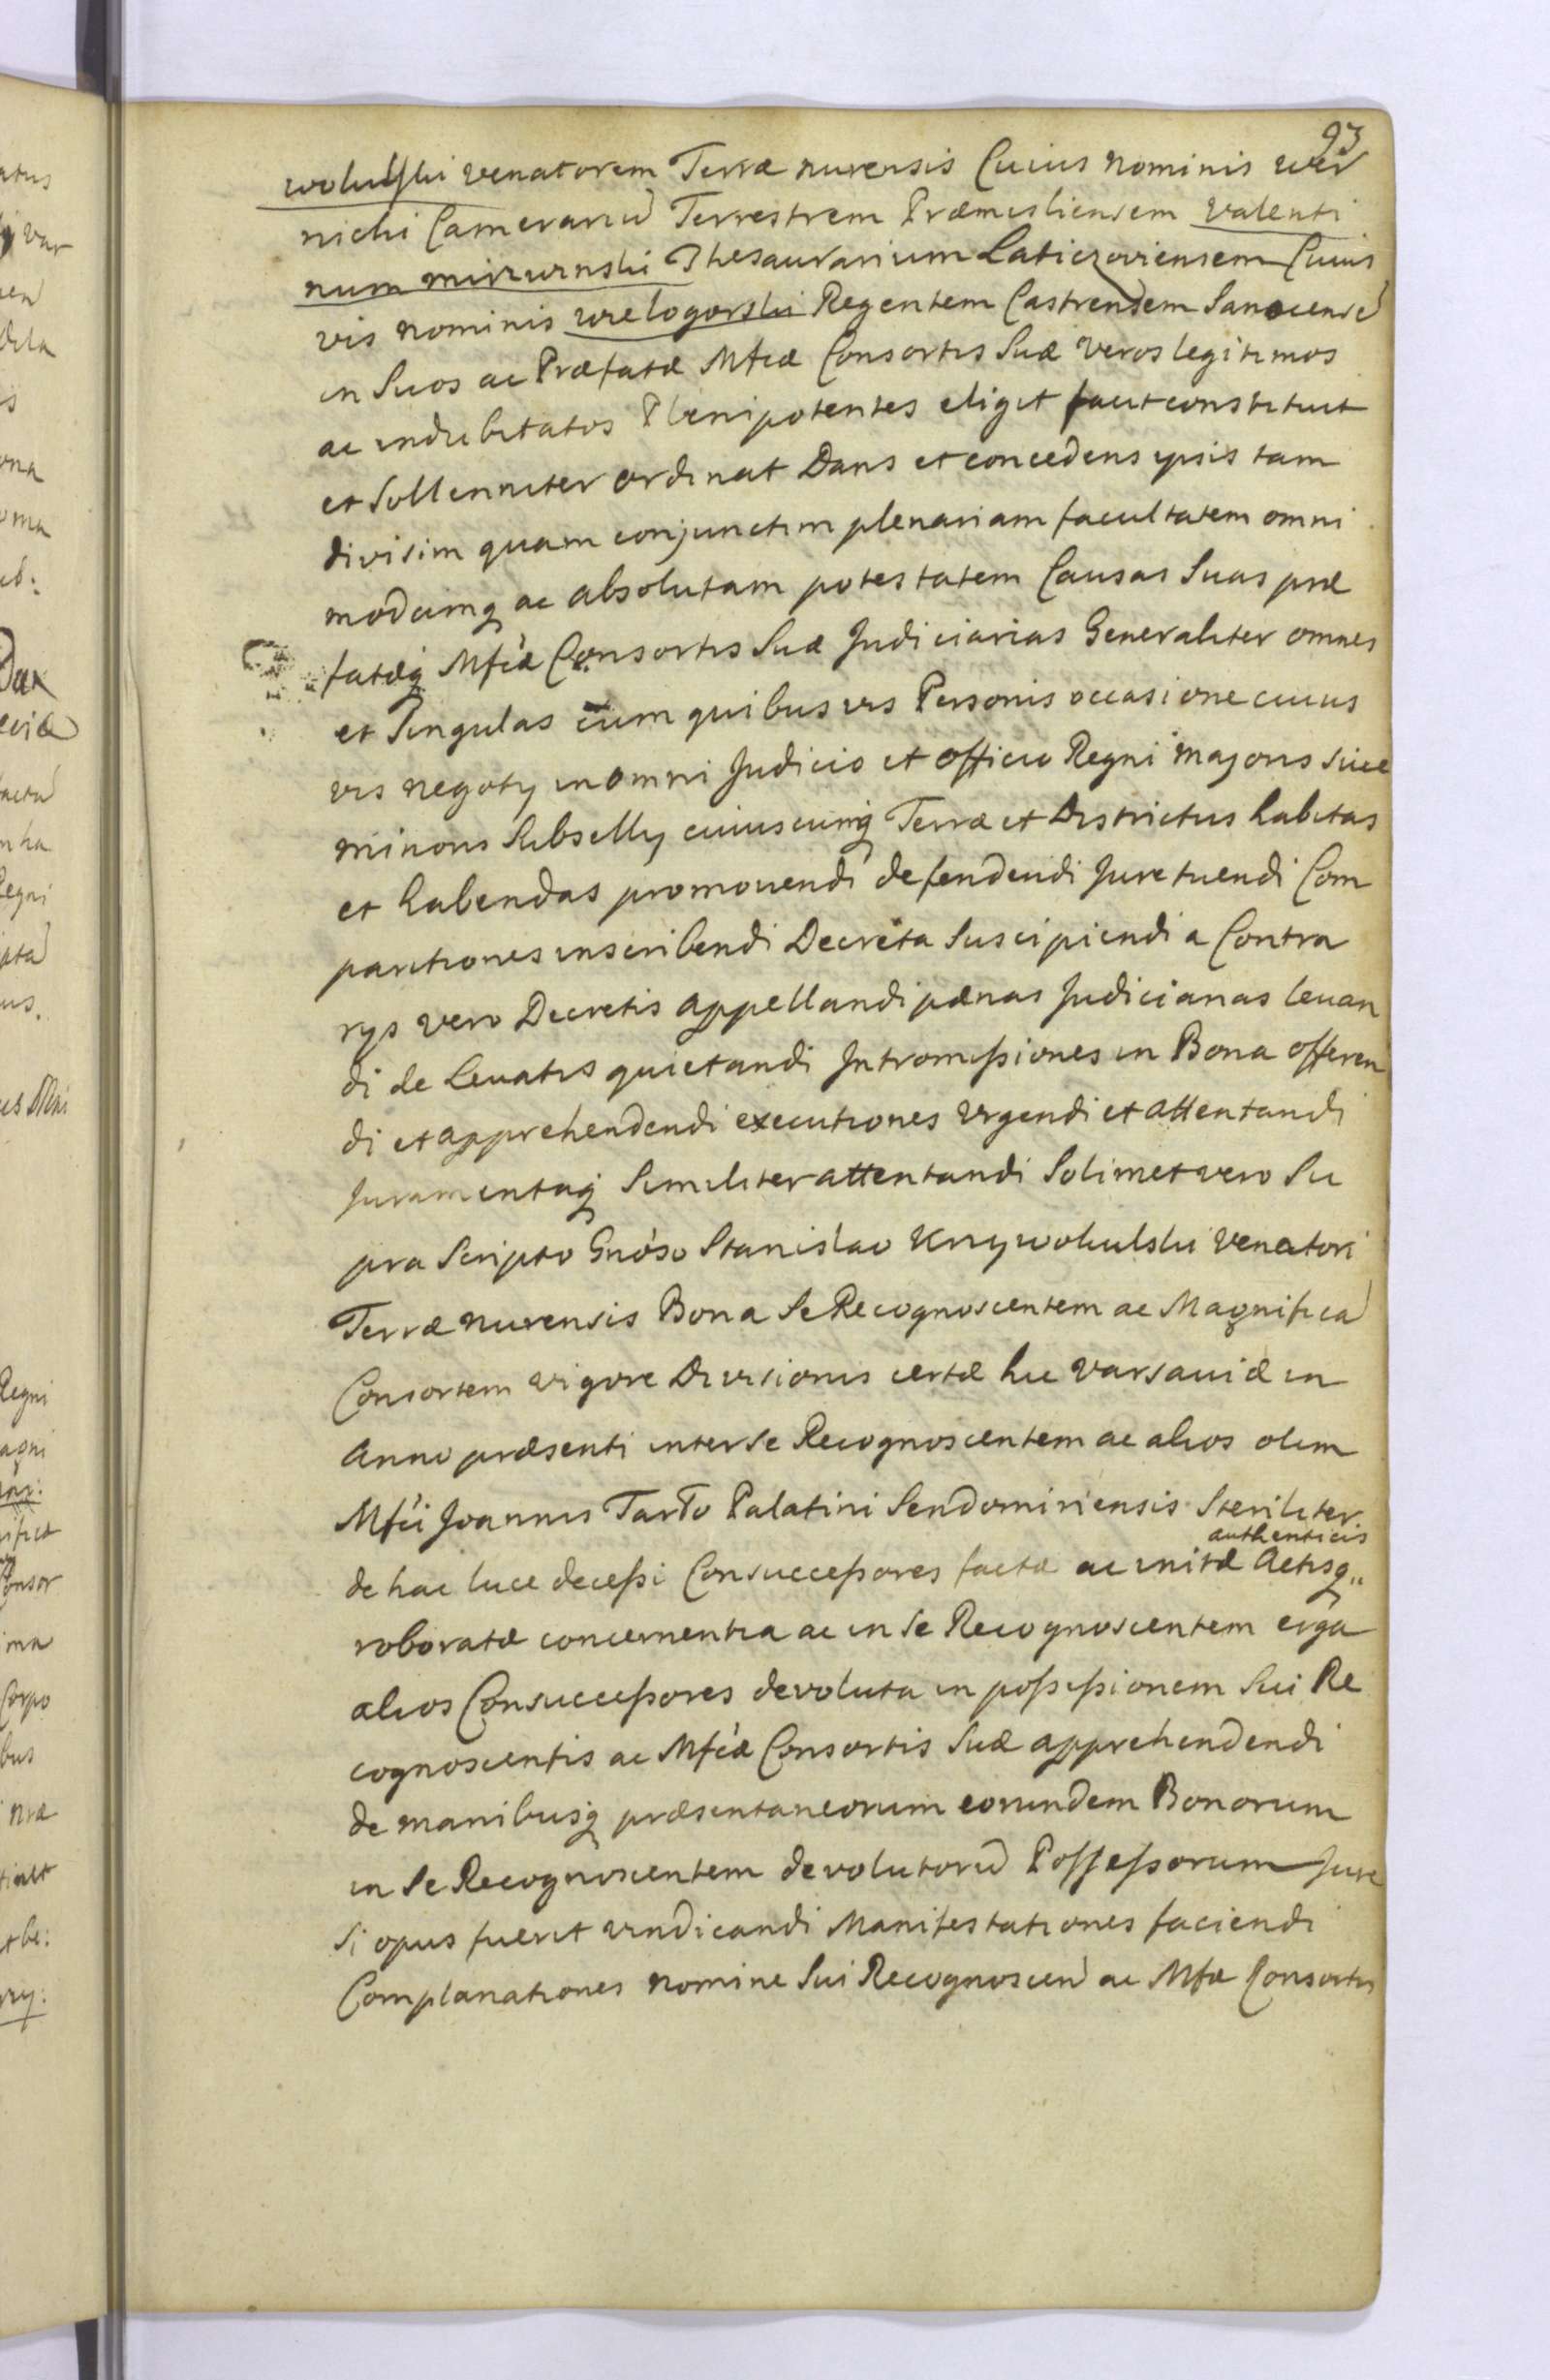 93
woluĺski venatorem Terræ nurensis Cuius nominis wer
nichi Camerariu Terrestrem Præmisliensem Valenti
num mirzurnski Thesaurarium Laticzoviensem Cuius
vis nominis wielogorski Regentem Castrensem Sanocense
in Suos ac Præfatæ Mfcæ Consortis Suæ veros legitimos
ac indubitatos Plenipotentes eligit facit constituit
et Sollenniter ordinat Dans et concedens ipsis tam
divisim quam conjunctim plenariam facultatem omni
modamq ac absolutam potestatem Causas Suas præ
fatæq Mfcæ Consortis Suæ Judiciarias Generaliter omnes
et Singulas cum quibusvis Personis occasione cuius
vis negoty in omni Judicio et officio Regni majoris sive
minoris Subselly cuiuscumq Terræ et Districtus habitas
et habendas promovendi defendendi Jure tuendi Com
paritiones inscribendi Decreta Suscipiendi a Contra
rys vero Decretis appellandi pænas Judiciarias levan
di de levatis quietandi Intromissiones in Bona offeren
di et apprehendendi executiones urgendi et attentandi
Juramentaq Similiter attentandi Solimet vero Su
pra Scripto Gnoso Stanislao Krzywokulski Venatori
Terræ nurensis Bona Se Recognoscentem ac Magnifica
Consortem vigore Divisionis certæ hic Varsaviæ in
Anno præsenti inter Se Recognoscentem ac alios olim
Mfci Joannis Tarło Palatini Sendomiriensis Steriliter
de hac luce decessi Consuccessores factæ ac initæ authenticis Actisq
roboratæ concernentia ac in Se Recognoscentem erga
alios Consuccessores devoluta in possessionem Sui Re
cognoscentis ac Mfcæ Consortis Suæ apprehendendi
de manibusq præsentaneorum eorundem Bonorum
in Se Recognoscentem devolutoru Possessorum Jure
Si opus fuerit vindicandi Manifestationes faciendi
Complanationes nomine Sui Recognoscen ac Mfæ Consortis